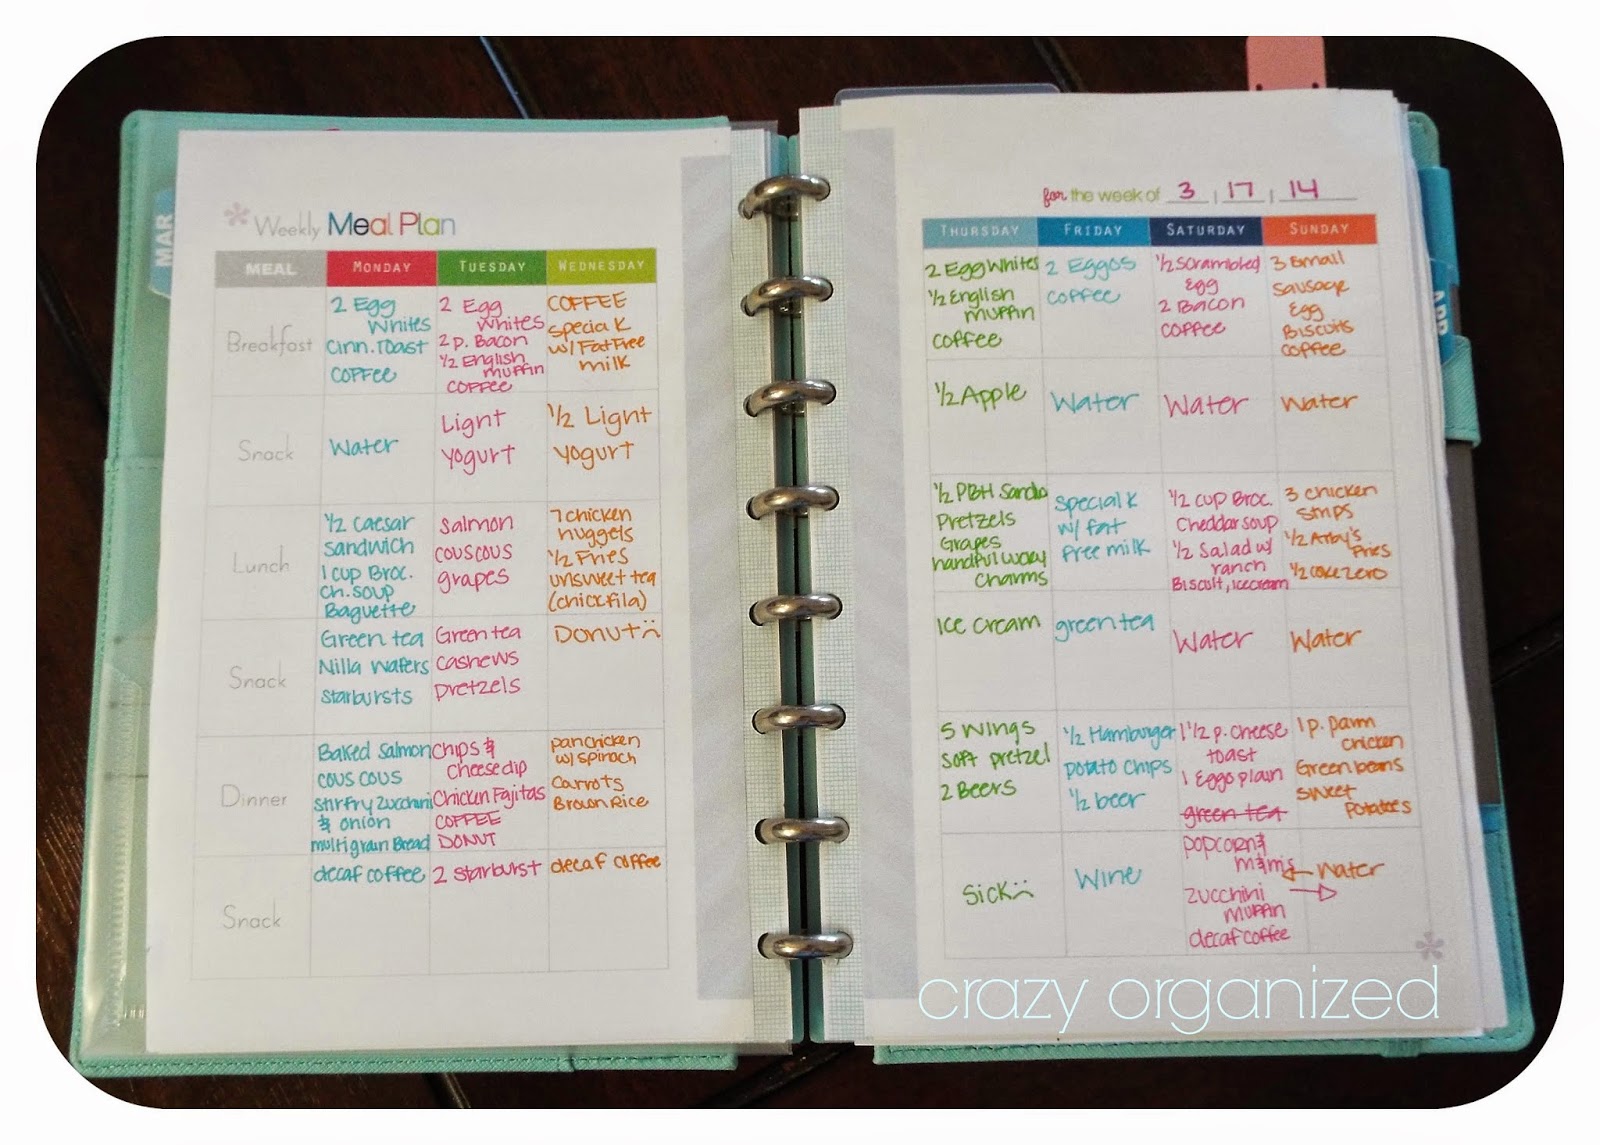 MAR
* Weekly Meal Plan
MEAL MONDAY TUESDAY WEDNESDAY
Breakfast
2 Egg
Whites
Cinn. Toast
COFFEE
2 Egg
Whites
2 p. Bacon
1/2 English
muffin
COFFEE
COFFEE
Special K
w/ Fat Free
milk
Snack
Water
Light
Yogurt
1/2 Light
Yogurt
Lunch
1/2 Caesar
Sandwich
1 cup Broc.
Ch. soup
Baguette
Salmon
couscous
grapes
7 chicken
nuggets
1/2 Fries
unsweet tea
(chickfila)
Snack
Green tea
Nilla Wafers
Starbursts
Green tea
Cashews
Pretzels
Donut
Dinner
Baked Salmon
cous cous
Stirfry Zucchini
& onion
multigrain Bread
Chips &
Cheese dip
Chicken Fajitas
COFFEE
DONUT
pan chicken
w/ spinach
Carrots
Brown Rice
Snack
decaf coffee
2 starburst
decaf coffee
for the week of 3 | 17 | 14
THURSDAY FRIDAY SATURDAY SUNDAY
2 Egg Whites
1/2 English
muffin
coffee
2 Eggos
coffee
1/2 scrambled
Egg
2 Bacon
coffee
3 small
sausage
Egg
Biscuits
coffee
1/2 Apple
Water
Water
Water
1/2 PBH Sando
Pretzels
Grapes
handful Lucky
Charms
Special K
w/ fat
free milk
1/2 cup Broc.
Cheddar soup
1/2 Salad w/
ranch
Biscuit, icecream
3 chicken
strips
1/2 Arby's
Fries
1/2 coke zero
Ice Cream
green tea
Water
Water
5 Wings
Soft pretzel
2 Beers
1/2 Hamburger
potato chips
1/2 beer
1 1/2 p. cheese
toast
1 Eggo plain
green tea
1 p. parm
chicken
Green beans
sweet
potatoes
Sick
Wine
popcorn &
m&m's
Zucchini
muffin
decaf coffee
Water
crazy organized